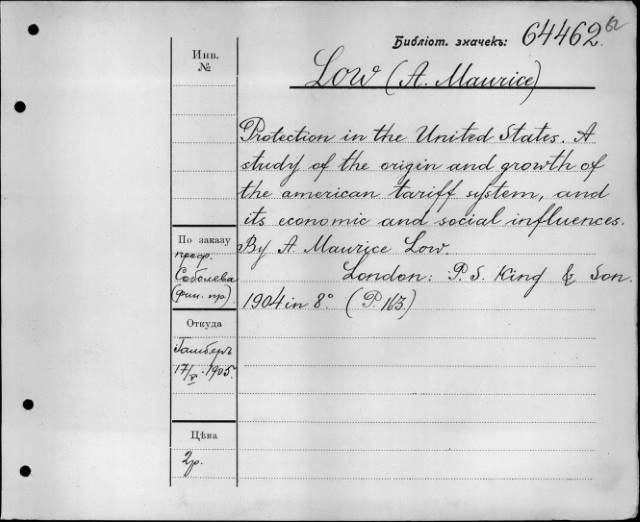 Библіот. значекъ: 64462 62
Инв.
№
Low (A. Maurice)
Protection in the United States. A
study of the origin and growth of
the american tariff system, and
its economic and social influences.
By A. Maurice Low.
London: P. S. King & Son.
1904 in 8° (P. 163)
По заказу
проф.
Соболева
(фин. пр)
Откуда
Гамберъ
17/V. 1905.
Цѣна
2р.